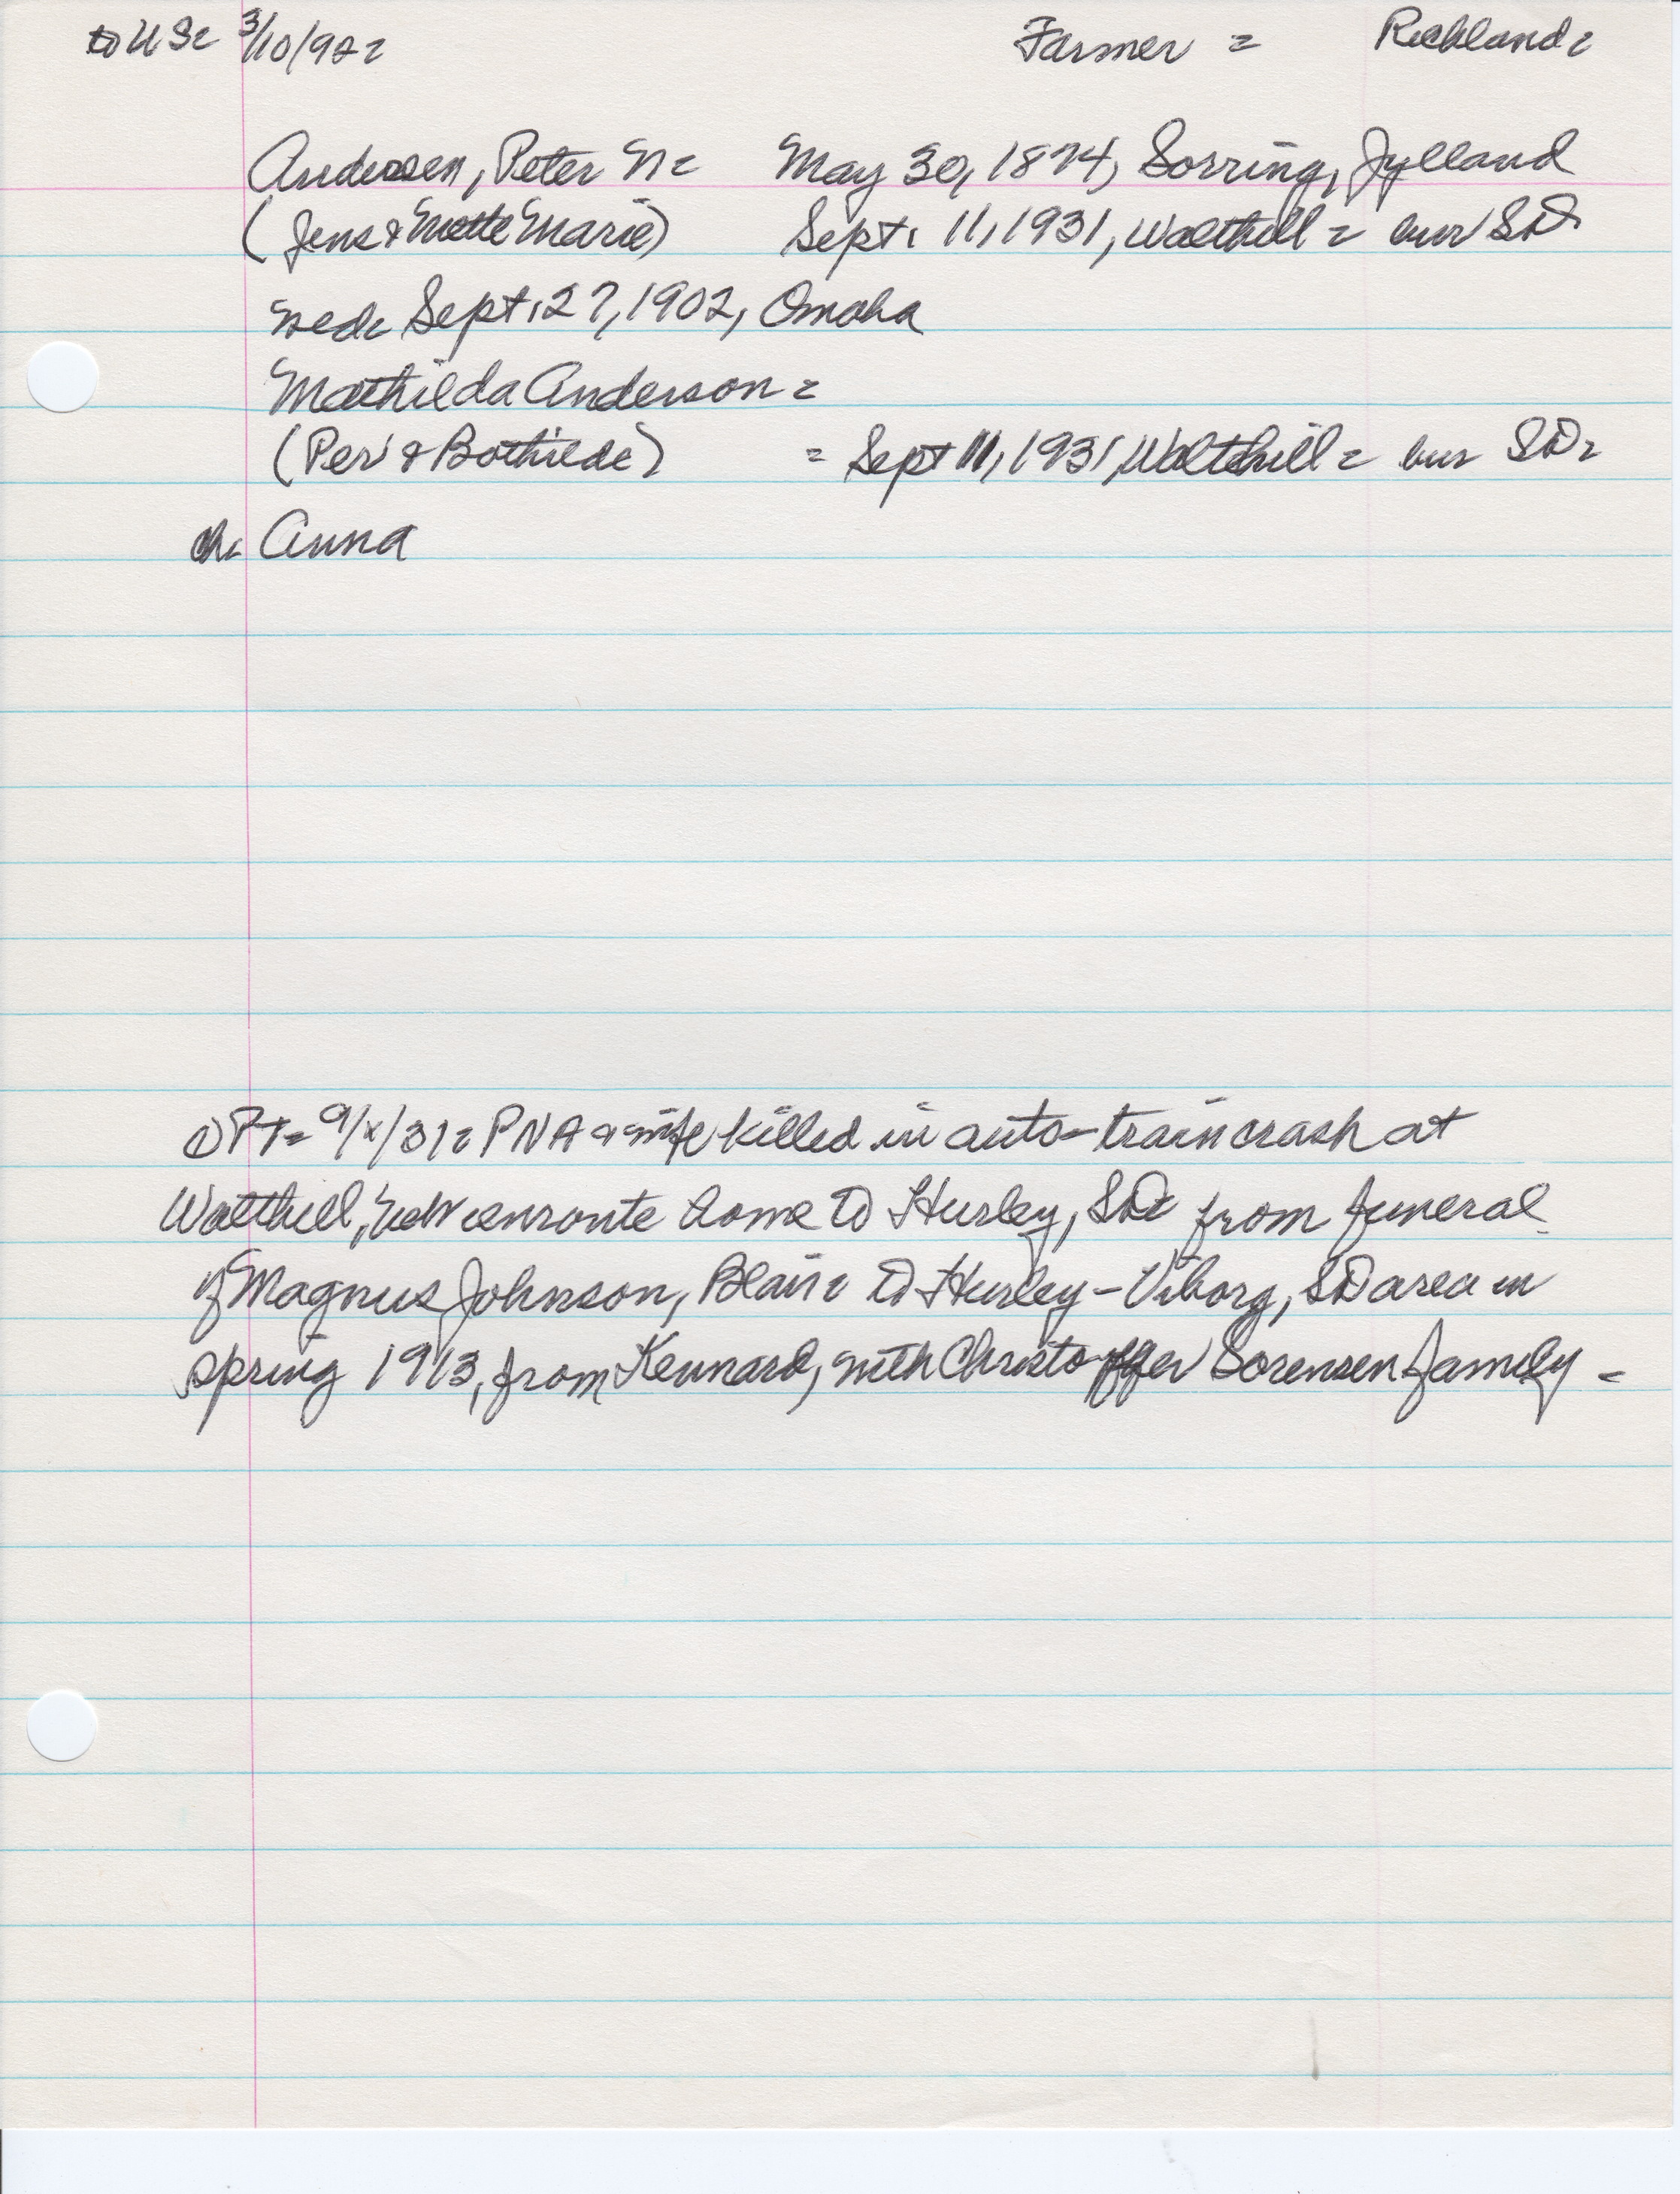 to US. 3/10/92. Farmer = Richland.
Andersen, Peter N. May 30, 1874, Sorring, Jylland
(Jens & Mette Marie) Sept. 11, 1931, Walthill = bur SD.
wed. Sept. 27, 1902, Omaha
Mathilda Anderson =
(Per & Bothilde) = Sept 11, 1931, Walthill = bur SD.
ch. Anna
PT = 9/x/31 = PNA & wife killed in auto-train crash at
Walthill, Neb enroute home to Hurley, SD. from funeral
of Magnus Johnson, Blair. To Hurley-Viborg, SD area in
spring 1913, from Kennard, with Christoffer Sorensen family -